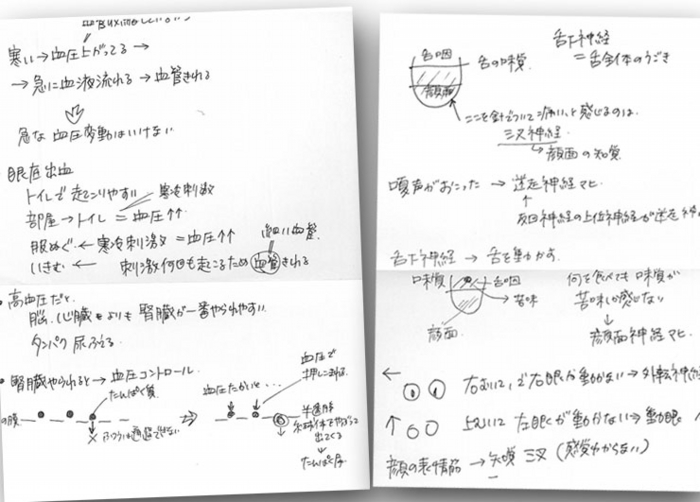 寒い→血圧上がってる→
→急に血液流れる→血管きれる
急な血圧変動はいけない
眼底出血
トイレで起こりやすい 寒冷刺激
部屋→トイレ=血圧↑↑
服ぬぐ←寒冷刺激=血圧↑↑ 細い血管
いきむ← 刺激何回も起こるため血管きれる
・高血圧だと、
脳、心臓よりも腎臓が一番やられやすい
タンパク尿ふえる
・腎臓やられると→血圧コントロール
たんぱく質
の膜
×ふつうは通過できない
⇒
血圧たかいと・・・
血圧で
半透膜
糸球体をやぶって
出てくる
↓
たんぱく尿
舌下神経
=舌全体のうごき
舌咽
舌の味覚
顔面
ここを針でついて「痛い」と感じるのは、
三叉神経
→顔面の知覚
嗄声がおこった→迷走神経マヒ
↑
反回神経の上位神経が迷走神
舌下神経→舌を動かす
味覚 舌咽
苦味
顔面
何を食べても味覚が
苦味しか感じない
↓
顔面神経マヒ
← 右むいて、で右眼が動かない→外転神経
↑ 上むいて 左眼が動かない→動眼
顔の表情筋→ 三叉(感覚わからない)